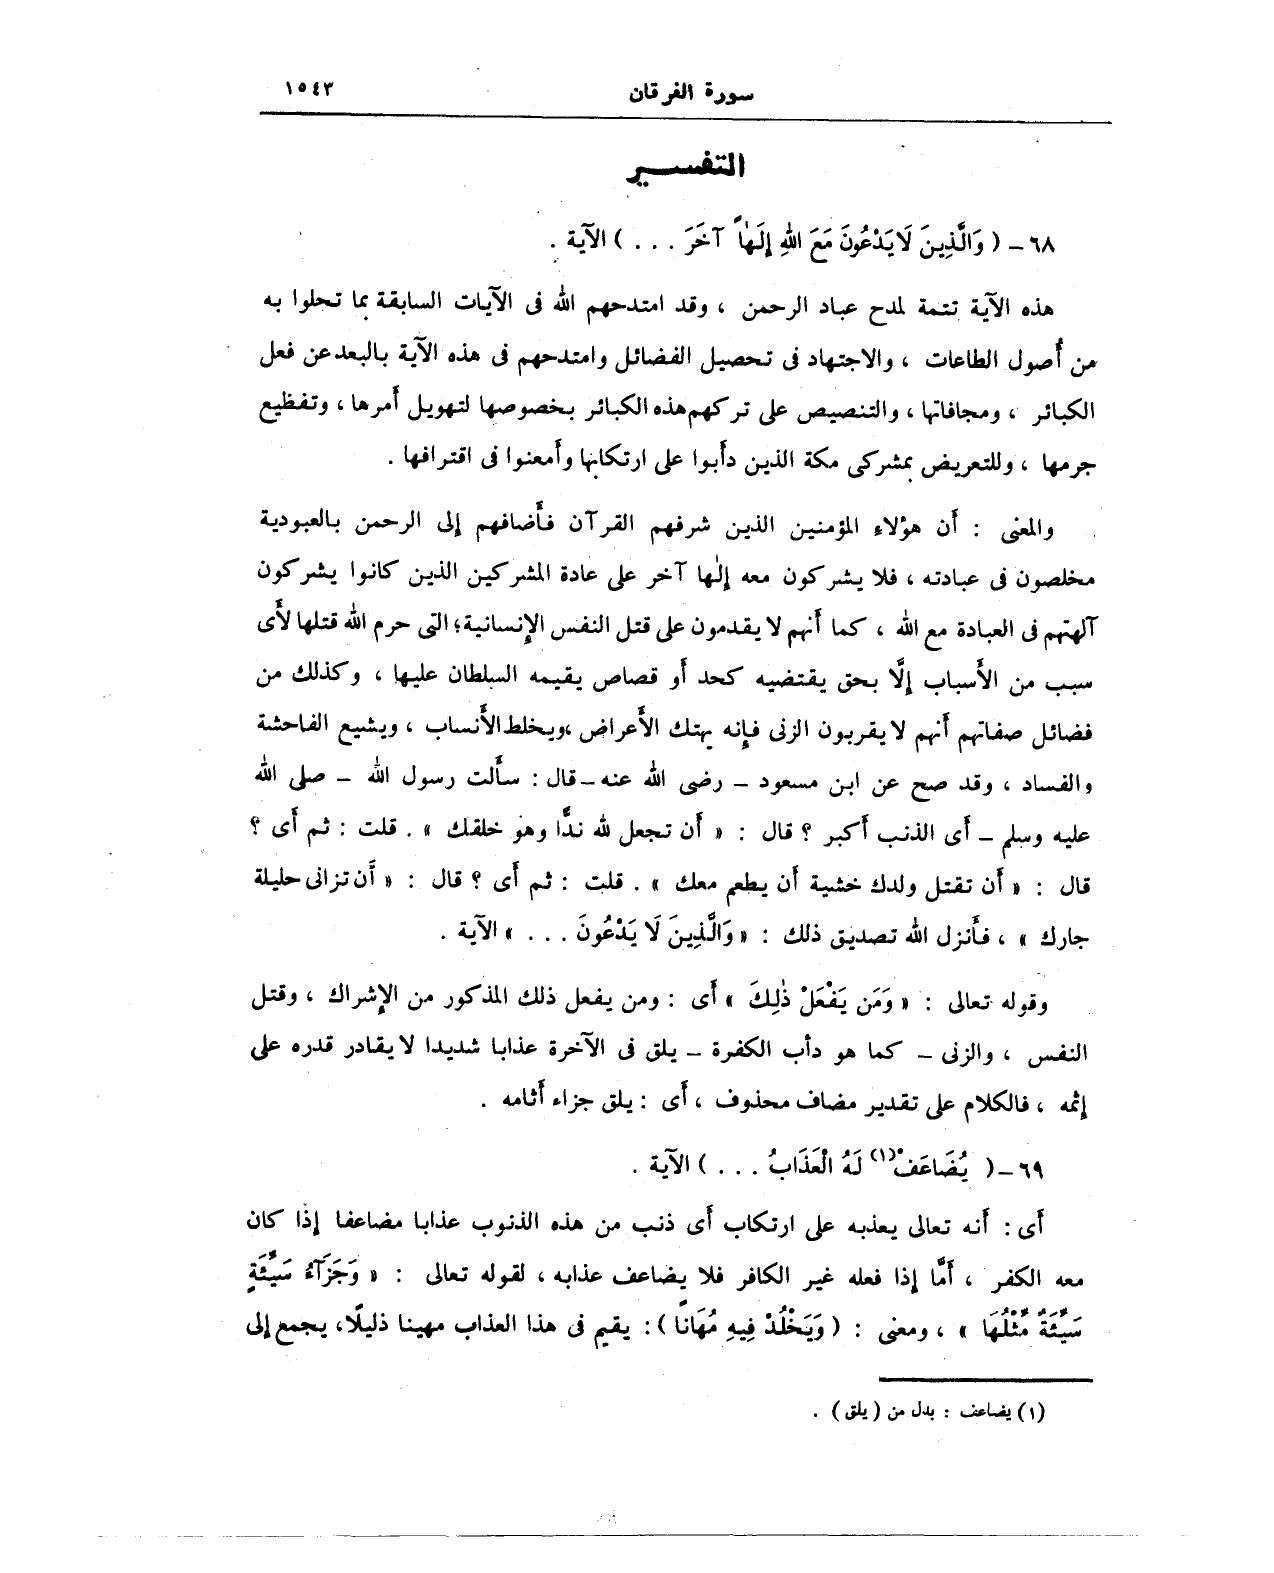 سورة الفرقان ١٥٤٣
التفسير
٦٨ – ( وَالَّذِينَ لَا يَدْعُونَ مَعَ اللهِ إِلَهاً آخَرَ . . . ) الآية .
هذه الآية تتمة لمدح عباد الرحمن ، وقد امتدحهم الله فى الآيات السابقة بما تحلوا به
من أُصول الطاعات ، والاجتهاد فى تحصيل الفضائل وامتدحهم فى هذه الآية بالبعد عن فعل
الكبائر ، ومجافاتها ، والتنصيص على تركهم هذه الكبائر بخصوصها لتهويل أمرها ، وتفظيع
جرمها ، وللتعريض بمشركى مكة الذين دأبوا على ارتكابها وأمعنوا فى اقترافها .
والمعنى : أن هؤلاء المؤمنين الذين شرفهم القرآن فأضافهم إلى الرحمن بالعبودية
مخلصون فى عبادته ، فلا يشركون معه إلٰها آخر على عادة المشركين الذين كانوا يشركون
آلهتهم فى العبادة مع الله ، كما أنهم لا يقدمون على قتل النفس الإنسانية؛ التى حرم الله قتلها لأى
سبب من الأسباب إلَّا بحق يقتضيه كحد أو قصاص يقيمه السلطان عليها ، وكذلك من
فضائل صفاتهم أنهم لا يقربون الزنى فإنه يهتك الأعراض ،ويخلط الأنساب ، ويشيع الفاحشة
والفساد ، وقد صح عن ابن مسعود – رضى الله عنه – قال : سألت رسول الله – صلى الله
عليه وسلم – أى الذنب أكبر ؟ قال : « أن تجعل لله ندًّا وهو خلقك » . قلت : ثم أى ؟
قال : « أن تقتل ولدك خشية أن يطعم معك » . قلت : ثم أى ؟ قال : « أن تزانى حليلة
جارك » ، فأنزل الله تصديق ذلك : « وَالَّذِينَ لَا يَدْعُونَ . . . » الآية .
وقوله تعالى : « وَمَن يَفْعَلْ ذٰلِكَ » أى : ومن يفعل ذلك المذكور من الإشراك ، وقتل
النفس ، والزنى – كما هو دأب الكفرة – يلق فى الآخرة عذابا شديدا لا يقادر قدره على
إثمه ، فالكلام على تقدير مضاف محذوف ، أى : يلق جزاء أثامه .
٦٩ – ( يُضَاعَفْ(١) لَهُ الْعَذَابُ . . . ) الآية .
أى : أنه تعالى يعذبه على ارتكاب أى ذنب من هذه الذنوب عذابا مضاعفا إذا كان
معه الكفر ، أمَّا إذا فعله غير الكافر فلا يضاعف عذابه ، لقوله تعالى : « وَجَزَآءُ سَيِّئَةٍ
سَيِّئَةٌ مِّثْلُهَا » ، ومعنى : ( وَيَخْلُدْ فِيهِ مُهَاناً ) : يقيم فى هذا العذاب مهينا ذليلًا، يجمع إلى
(١) يضاعف : بدل من ( يلق ) .